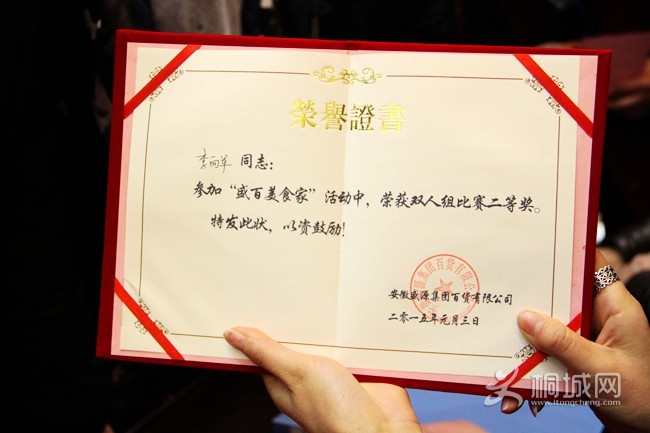 榮譽證書
李向军 同志：
参加“盛百美食家”活动中，荣获双人组比赛二等奖。
特发此状，以资鼓励！
安徽盛源集团百货有限公司
二零一五年元月三日
桐城网
www.itongcheng.com